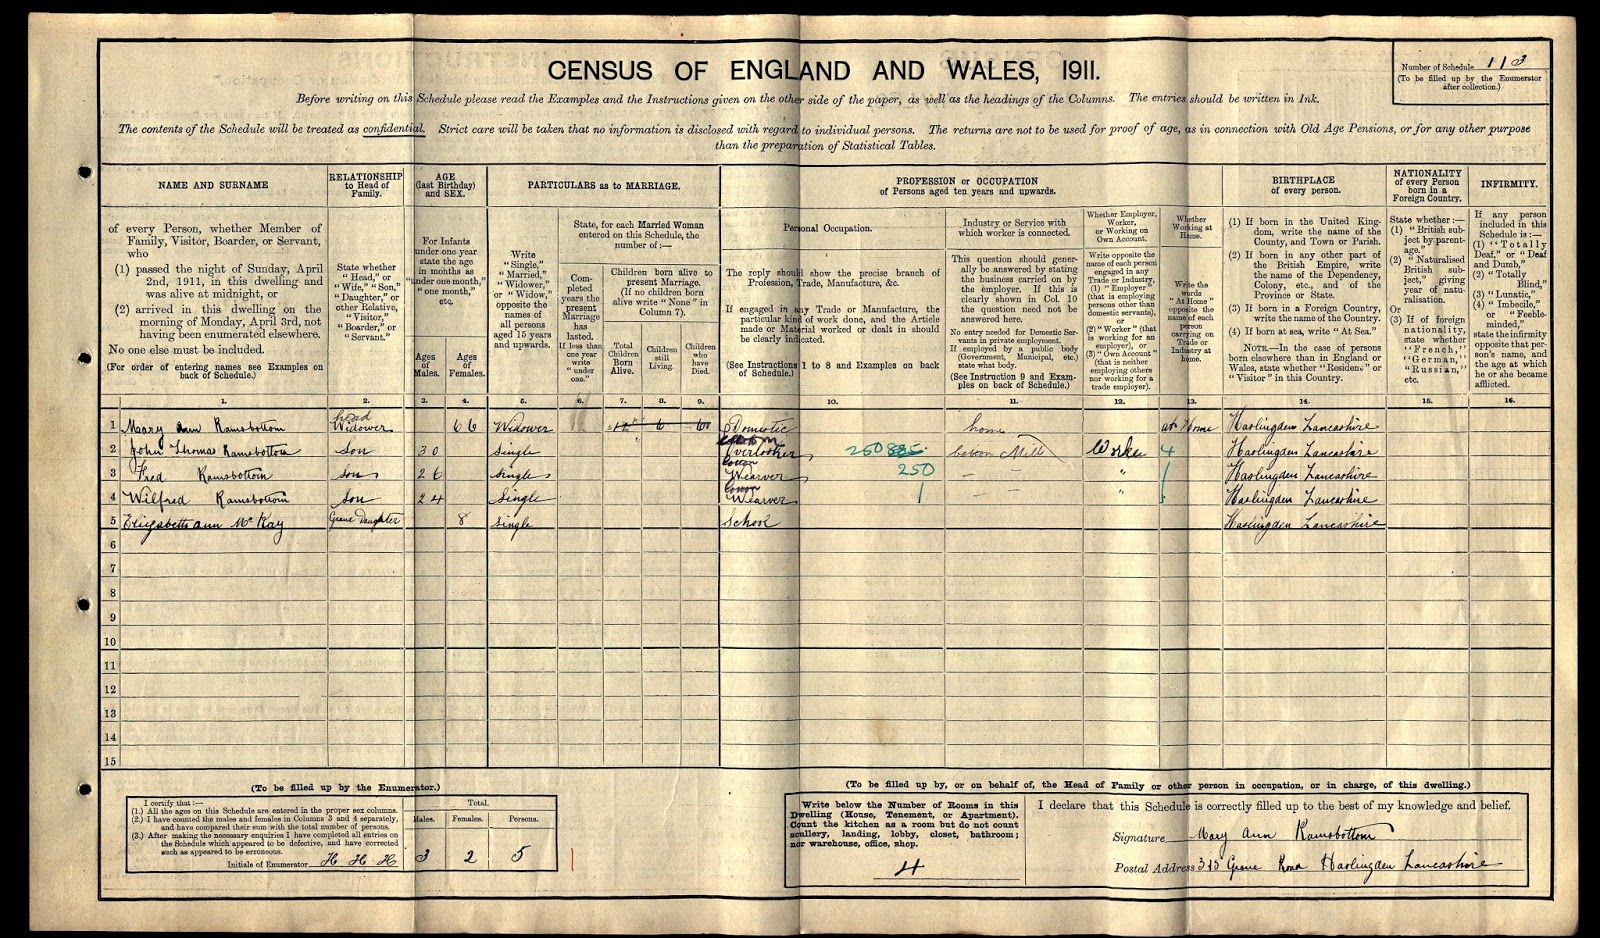 CENSUS OF ENGLAND AND WALES, 1911.
Number of Schedule 113
(To be filled up by the Enumerator
after collection.)
Before writing on this Schedule please read the Examples and the Instructions given on the other side of the paper, as well as the headings of the Columns. The entries should be written in Ink.
The contents of the Schedule will be treated as confidential. Strict care will be taken that no information is disclosed with regard to individual persons. The returns are not to be used for proof of age, as in connection with Old Age Pensions, or for any other purpose
than the preparation of Statistical Tables.
NAME AND SURNAME
of every Person, whether Member of
Family, Visitor, Boarder, or Servant,
who
(1) passed the night of Sunday, April
2nd, 1911, in this dwelling and
was alive at midnight, or
(2) arrived in this dwelling on the
morning of Monday, April 3rd, not
having been enumerated elsewhere.
No one else must be included.
(For order of entering names see Examples on
back of Schedule.)
RELATIONSHIP
to Head of
Family.
State whether
"Head," or
"Wife," "Son,"
"Daughter," or
other Relative,
"Visitor,"
"Boarder," or
"Servant."
AGE
(last Birthday)
and SEX.
For Infants
under one year
state the age
in months as
"under one month,"
"one month,"
etc.
Ages
of
Males.
Ages
of
Females.
PARTICULARS as to MARRIAGE.
Write
"Single,"
"Married,"
"Widower,"
or "Widow,"
opposite the
names of
all persons
aged 15 years
and upwards.
State, for each Married Woman
entered on this Schedule, the
number of:—
Completed
years the
present
Marriage
has
lasted.
If less than
one year
write
"under
one."
Children born alive to
present Marriage.
(If no children born
alive write "None" in
Column 7).
Total
Children
Born
Alive.
Children
still
Living.
Children
who
have
Died.
PROFESSION or OCCUPATION
of Persons aged ten years and upwards.
Personal Occupation.
The reply should show the precise branch of
Profession, Trade, Manufacture, &c.
If engaged in any Trade or Manufacture, the
particular kind of work done, and the Article
made or Material worked or dealt in should
be clearly indicated.
(See Instructions 1 to 8 and Examples on back
of Schedule.)
Industry or Service with
which worker is connected.
This question should gener-
ally be answered by stating
the business carried on by
the employer. If this is
clearly shown in Col. 10
the question need not be
answered here.
No entry needed for Domestic Ser-
vants in private employment.
If employed by a public body
(Government, Municipal, etc.)
state what body.
(See Instruction 9 and Exam-
ples on back of Schedule.)
Whether Employer,
Worker,
or Working on
Own Account.
Write opposite the
name of each person
engaged in any
Trade or Industry,
(1) "Employer"
(that is employing
persons other than
domestic servants),
or
(2) "Worker" (that
is working for an
employer), or
(3) "Own Account"
(that is neither
employing others
nor working for a
trade employer).
Whether
Working at
Home.
Write the
words
"At Home"
opposite the
name of each
person
carrying on
Trade or
Industry at
home.
BIRTHPLACE
of every person.
(1) If born in the United King-
dom, write the name of the
County, and Town or Parish.
(2) If born in any other part of
the British Empire, write
the name of the Dependency,
Colony, etc., and of the
Province or State.
(3) If born in a Foreign Country,
write the name of the Country.
(4) If born at sea, write "At Sea."
NOTE.—In the case of persons
born elsewhere than in England or
Wales, state whether "Resident" or
"Visitor" in this Country.
NATIONALITY
of every Person
born in a
Foreign Country.
State whether:—
(1) "British sub-
ject by parent-
age,"
(2) "Naturalised
British sub-
ject," giving
year of natu-
ralisation.
Or
(3) If of foreign
nationality,
state whether
"French,"
"German,"
"Russian,"
etc.
INFIRMITY.
If any person
included in this
Schedule is:—
(1) "Totally
Deaf," or "Deaf
and Dumb,"
(2) "Totally
Blind,"
(3) "Lunatic,"
(4) "Imbecile,"
or "Feeble-
minded,"
state the infirmity
opposite that per-
son's name, and
the age at which
he or she became
afflicted.
1. 2. 3. 4. 5. 6. 7. 8. 9. 10. 11. 12. 13. 14. 15. 16.
1 Mary Ann Ramsbottom head Widower 66 Widower 12 6 6 Domestic home at Home Haslingden Lancashire
2 John Thomas Ramsbottom Son 30 Single Overlooker 250 885 Cotton Mill Worker 4 Haslingden Lancashire
3 Fred Ramsbottom Son 26 Single Cotton Wearver 250 — — " Haslingden Lancashire
4 Wilfred Ramsbottom Son 24 Single Cotton Wearver — — " Haslingden Lancashire
5 Elizabeth ann McKay Grane Daughter 8 Single School Haslingden Lancashire
6
7
8
9
10
11
12
13
14
15
(To be filled up by the Enumerator.)
I certify that:—
(1.) All the ages on this Schedule are entered in the proper sex columns.
(2.) I have counted the males and females in Columns 3 and 4 separately,
and have compared their sum with the total number of persons.
(3.) After making the necessary enquiries I have completed all entries on
the Schedule which appeared to be defective, and have corrected
such as appeared to be erroneous.
Initials of Enumerator H H H
Total.
Males. Females. Persons.
3 2 5
(To be filled up by, or on behalf of, the Head of Family or other person in occupation, or in charge, of this dwelling.)
Write below the Number of Rooms in this
Dwelling (House, Tenement, or Apartment).
Count the kitchen as a room but do not count
scullery, landing, lobby, closet, bathroom;
nor warehouse, office, shop.
4
I declare that this Schedule is correctly filled up to the best of my knowledge and belief.
Signature Mary Ann Ramsbottom
Postal Address 345 Grane Road Haslingden Lancashire